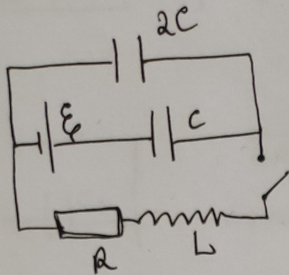 2C
ℰ C
R L